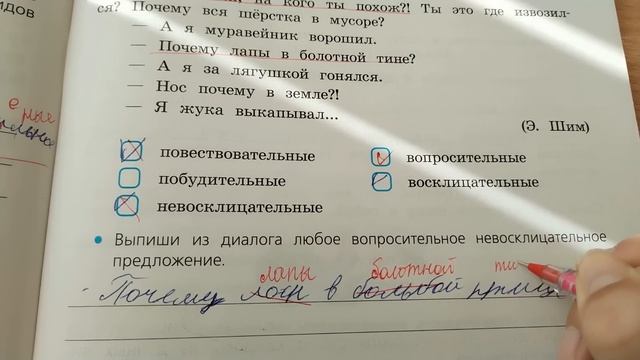 на кого ты похож?! Ты это где извозил-
ся? Почему вся шёрстка в мусоре?
— А я муравейник ворошил.
— Почему лапы в болотной тине?
— А я за лягушкой гонялся.
— Нос почему в земле?!
— Я жука выкапывал...
(Э. Шим)
повествовательные
вопросительные
побудительные
восклицательные
невосклицательные
• Выпиши из диалога любое вопросительное невосклицательное
предложение.
лапы болотной ти
- Почему в